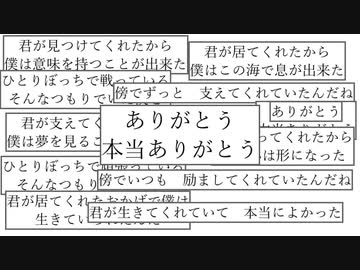 君が見つけてくれたから
僕は意味を持つことが出来た
君が居てくれたから
僕はこの海で息が出来た
ひとりぼっちで戦っている
そんなつもりでい
傍でずっと 支えてくれていたんだね
ありがとう
君が支えてく
僕は夢を見るこ
ありがとう
本当ありがとう
ってくれたから
は形になった
ひとりぼっちで
そんなつもり
傍でいつも 励ましてくれていたんだね
君が居てくれたおかげで僕は
生きてい
君が生きてくれていて 本当によかった